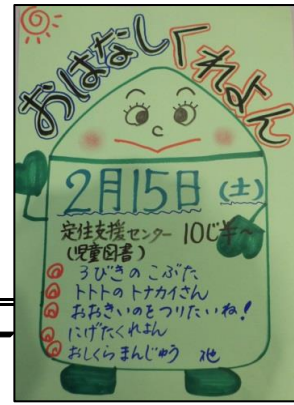 おはなしくれよん
2月15日(土)
定住支援センター 10じ半〜
(児童図書)
3びきのこぶた
トトトのトナカイさん
おおきいのをつりたいね!
にげたくれよん
おしくらまんじゅう 他